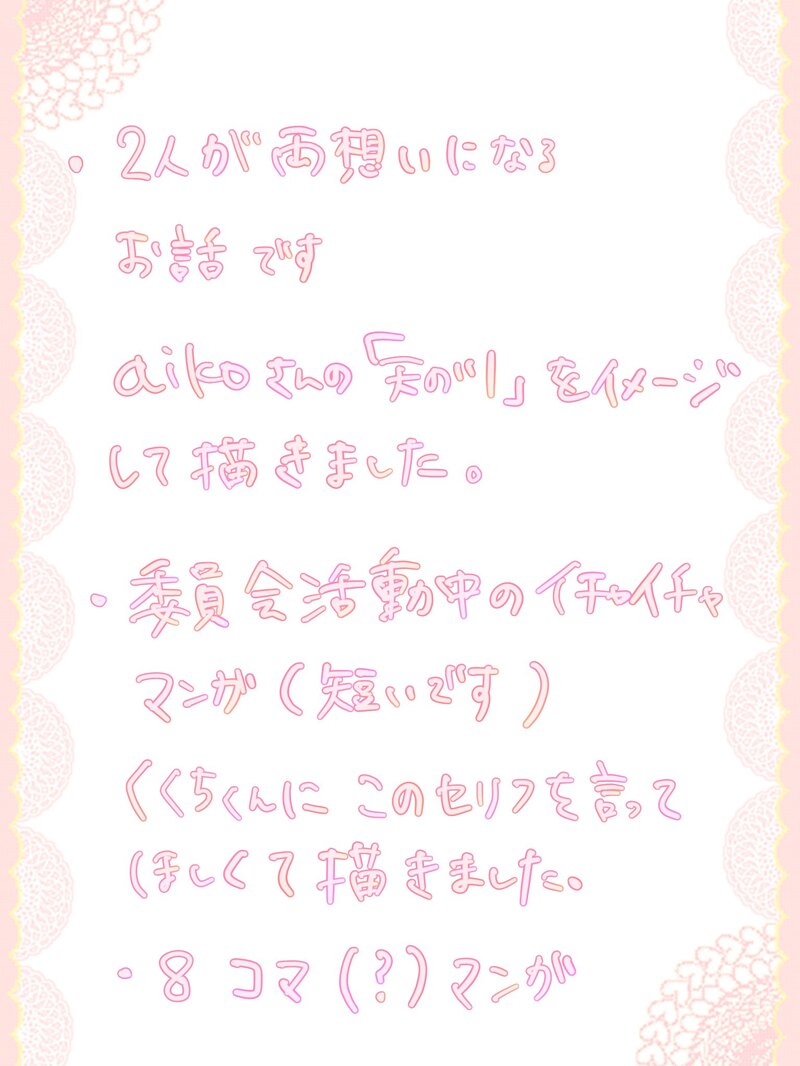 ・2人が両想いになる
お話です
aikoさんの「天の川」をイメージ
して描きました。
・委員会活動中のイチャイチャ
マンガ(短いです)
くくちくんにこのセリフを言って
ほしくて描きました、
・8コマ(?)マンガ